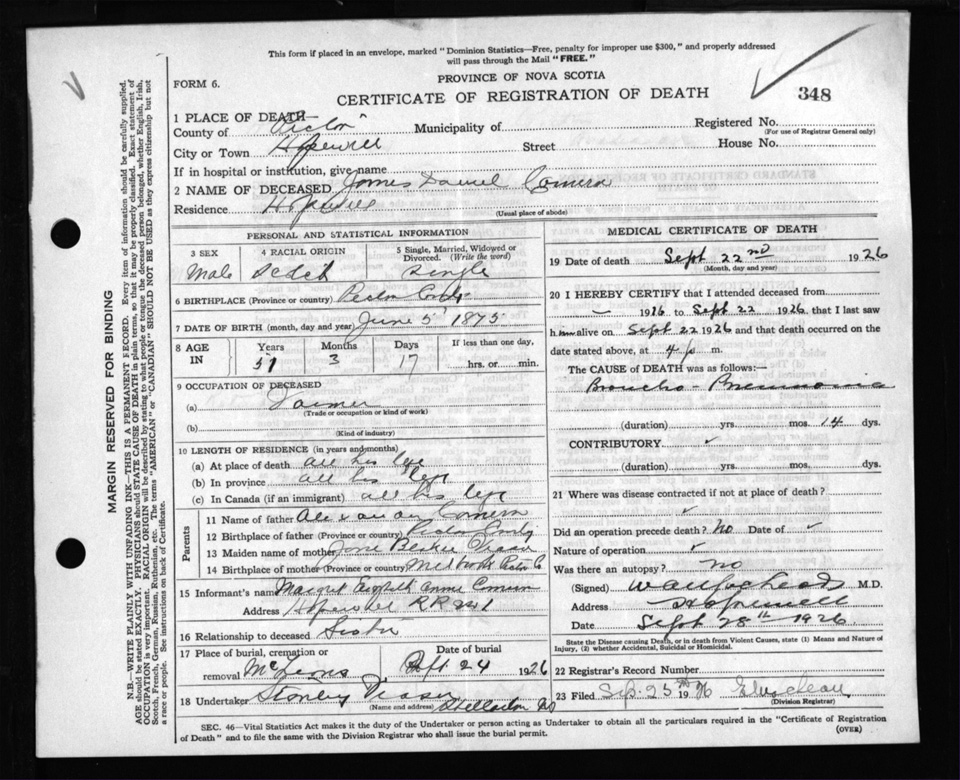 This form if placed in an envelope, marked "Dominion Statistics—Free, penalty for improper use $300," and properly addressed
will pass through the Mail "FREE."
FORM 6.
PROVINCE OF NOVA SCOTIA
CERTIFICATE OF REGISTRATION OF DEATH
348
1 PLACE OF DEATH
County of Pictou Municipality of
Registered No.
(For use of Registrar General only)
City or Town Hopewell Street House No.
If in hospital or institution, give name
2 NAME OF DECEASED James Daniel
Residence Hopewell
(Usual place of abode)
PERSONAL AND STATISTICAL INFORMATION
3 SEX
Male
4 RACIAL ORIGIN
5 Single, Married, Widowed or Divorced. (Write the word)
Single
6 BIRTHPLACE (Province or country) Pictou
7 DATE OF BIRTH (month, day and year) June 5 1875
8 AGE IN
Years Months Days If less than one day,
51 3 17 hrs. or min.
9 OCCUPATION OF DECEASED
(a) Farmer
(Trade or occupation or kind of work)
(b)
(Kind of industry)
10 LENGTH OF RESIDENCE (in years and months)
(a) At place of death all his life
(b) In province all his life
(c) In Canada (if an immigrant) all his life
Parents
11 Name of father
12 Birthplace of father (Province or country) Pictou
13 Maiden name of mother
14 Birthplace of mother (Province or country) Pictou Co
15 Informant's name Margret Annie
Address Hopewell RR
16 Relationship to deceased Sister
17 Place of burial, cremation or removal
Date of burial
24 1926
18 Undertaker Stanley Fraser
(Name and address) Stellarton NS
MEDICAL CERTIFICATE OF DEATH
19 Date of death Sept 22nd 1926
(Month, day and year)
20 I HEREBY CERTIFY that I attended deceased from
— 1926 to Sept 22 1926 that I last saw
him alive on Sept 22 1926 and that death occurred on the
date stated above, at 4 p m.
The CAUSE of DEATH was as follows:—
Broncho-Pneumonia
(duration) yrs. mos. 14 dys.
CONTRIBUTORY
(duration) yrs. mos. dys.
21 Where was disease contracted if not at place of death?
Did an operation precede death? No Date of
Nature of operation
Was there an autopsy? no
(Signed) M.D.
Address Hopewell
Date Sept 28th 1926
State the Disease causing Death, or in death from Violent Causes, state (1) Means and Nature of
Injury, (2) whether Accidental, Suicidal or Homicidal.
22 Registrar's Record Number
23 Filed Sep. 25th 1926
(Division Registrar)
SEC. 46—Vital Statistics Act makes it the duty of the Undertaker or person acting as Undertaker to obtain all the particulars required in the "Certificate of Registration
of Death" and to file the same with the Division Registrar who shall issue the burial permit.
(OVER)
MARGIN RESERVED FOR BINDING
N.B.—WRITE PLAINLY WITH UNFADING INK—THIS IS A PERMANENT RECORD. Every item of information should be carefully supplied.
AGE should be stated EXACTLY. PHYSICIANS should STATE CAUSE OF DEATH in plain terms, so that it may be properly classified. Exact statement of
OCCUPATION is very important. RACIAL ORIGIN will be described by stating to what people or tongue the deceased person belonged, whether English, Irish,
Scotch, French, German, Russian, Ruthenian, etc. The terms "AMERICAN" or "CANADIAN" SHOULD NOT BE USED as they express citizenship but not
a race or people. See instructions on back of Certificate.